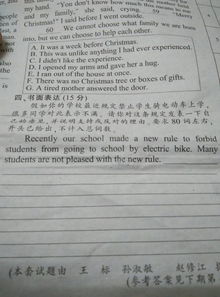 my hand. "You don't know how much this
and my family," she said, crying. "Merry
Christmas!" I said before I went outside.
60 We cannot choose what family we are born
into, but we can choose to help each other.
A. It was a week before Christmas.
B. This was unlike anything I had ever experienced.
C. I didn't like the experience.
D. I opened my arms and gave her a hug.
E. I ran out of the house at once.
F. There was no Christmas tree or boxes of gifts.
G. A tired mother answered the door.
四、书面表达 (15 分)
假如你的学校最近规定禁止学生骑电动车上学，
很多同学对此表示不满。请你对这条规定发表一下自
己的看法，并说明支持或反对的理由。要求 80 词左右，
开头已给出，不计入总词数。
Recently our school made a new rule to forbid
students from going to school by electric bike. Many
students are not pleased with the new rule.
(本套试题由 王 标 孙淑敏 赵修江
(参考答案见下期第